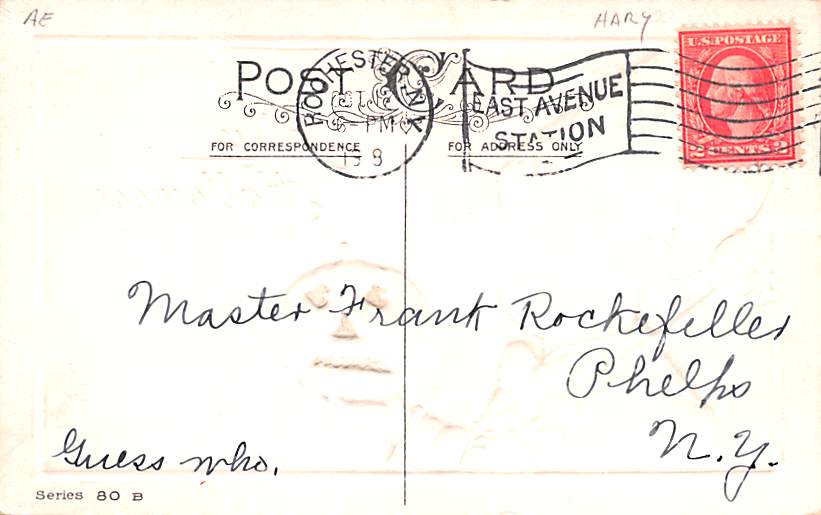 AE
HARY
U.S. POSTAGE
2 CENTS 2
POST CARD
ROCHESTER, N.Y.
OCT
6 - PM
19 8
EAST AVENUE
STATION
FOR CORRESPONDENCE
FOR ADDRESS ONLY
Master Frank Rockefeller
Phelps
N.Y.
Guess who.
Series 80 B